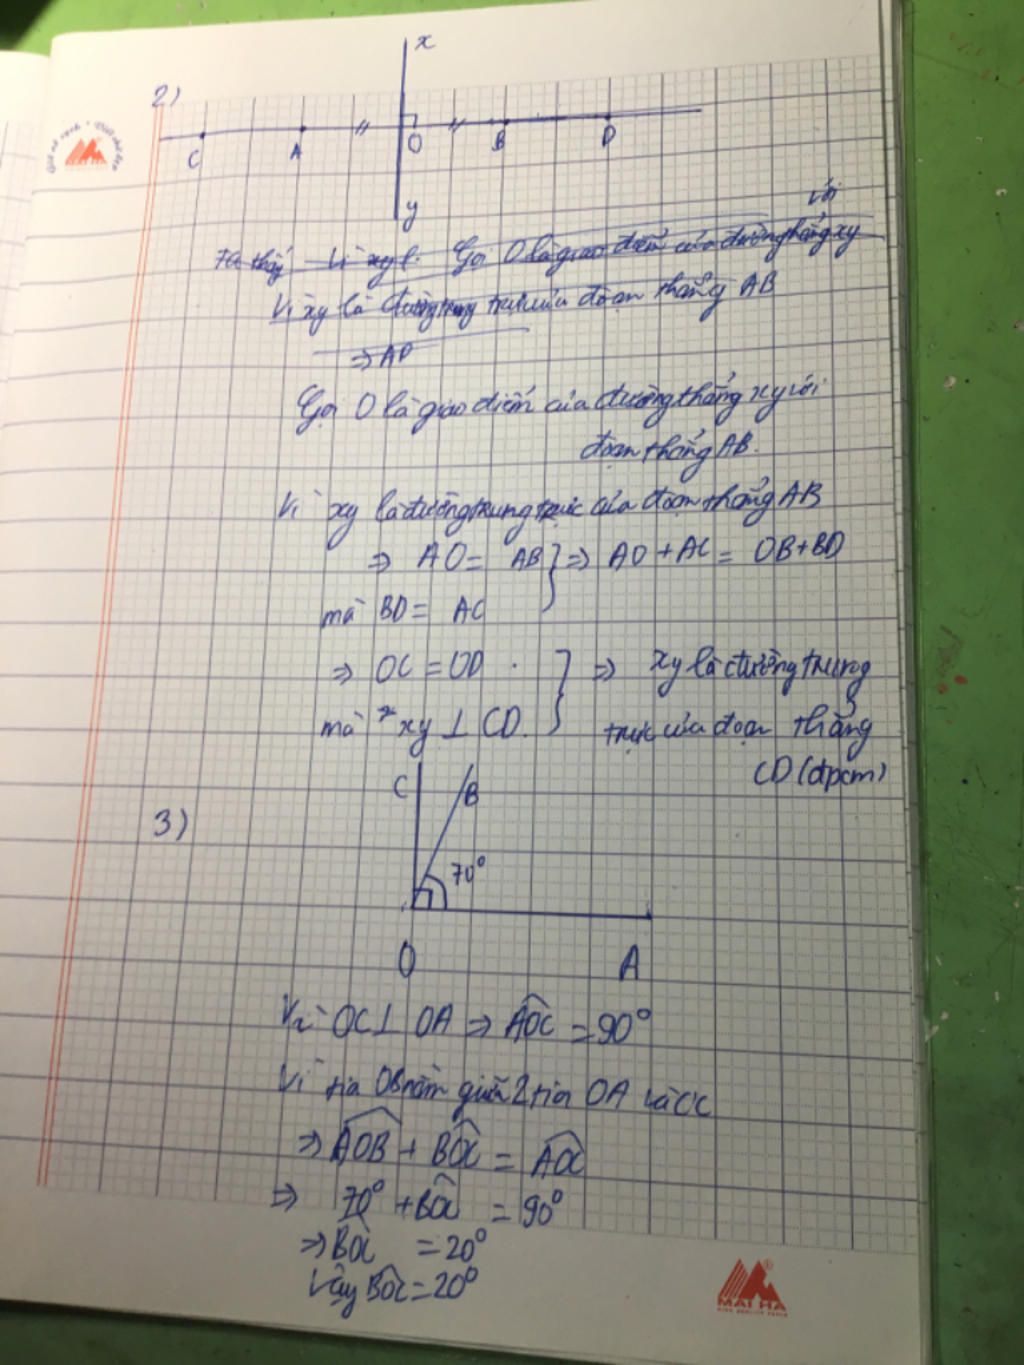 x
2)
C A O B D
y
với
Ta thấy Vì xy l. Gọi O là giao điểm của đường thẳng xy
Vì xy là đường trung trực của đoạn thẳng AB
⇒ AD
Gọi O là giao điểm của đường thẳng xy với
đoạn thẳng AB.
Vì xy là đường trung trực của đoạn thẳng AB
⇒ AO = AB } ⇒ AO + AC = OB + BD
mà BD = AC
⇒ OC = OD . } ⇒ xy là đường trung
mà xy ⊥ CD. trực của đoạn thẳng
CD (đpcm)
C B
3)
70°
O A
Vì OC ⊥ OA ⇒ AOC = 90°
Vì tia OB nằm giữa 2 tia OA và OC
⇒ AOB + BOC = AOC
⇒ 70° + BOC = 90°
⇒ BOC = 20°
Vậy BOC = 20°
MAI HA